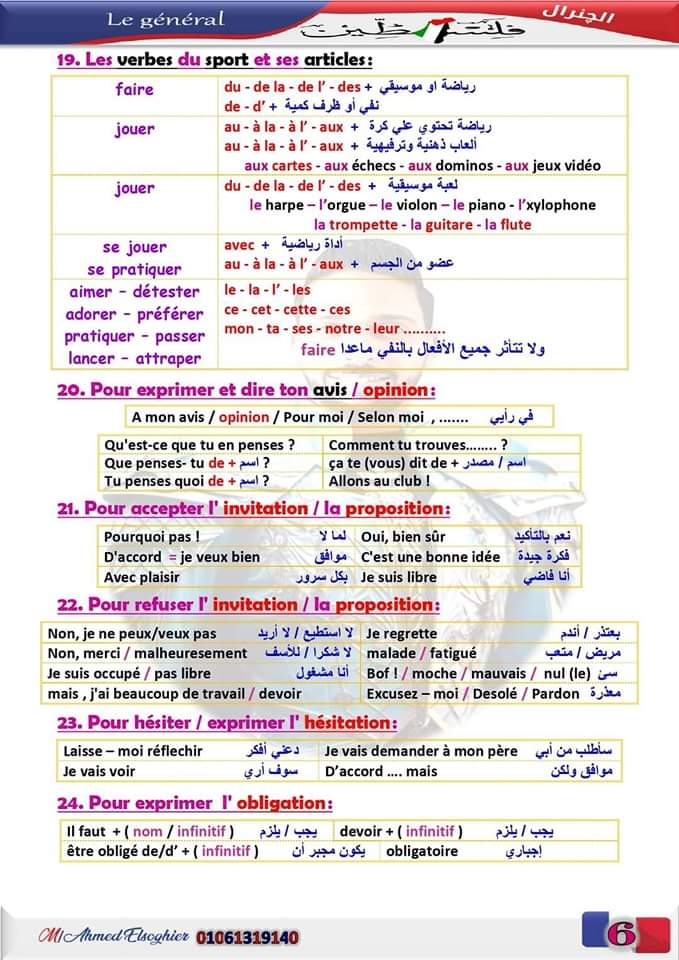 Le général
فلسطين
الچنرال
19. Les verbes du sport et ses articles:
faire
du - de la - de l' - des + رياضة او موسيقي
de - d' + نفي أو ظرف كمية
jouer
au - à la - à l' - aux + رياضة تحتوي علي كرة
au - à la - à l' - aux + ألعاب ذهنية وترفيهية
aux cartes - aux échecs - aux dominos - aux jeux vidéo
jouer
du - de la - de l' - des + لعبة موسيقية
le harpe – l'orgue – le violon – le piano - l'xylophone
la trompette - la guitare - la flute
se jouer
se pratiquer
avec + أداة رياضية
au - à la - à l' - aux + عضو من الجسم
aimer – détester
adorer – préférer
pratiquer – passer
lancer – attraper
le - la - l' - les
ce - cet - cette - ces
mon - ta - ses - notre - leur ..........
ولا تتأثر جميع الأفعال بالنفي ماعدا faire
20. Pour exprimer et dire ton avis / opinion:
A mon avis / opinion / Pour moi / Selon moi , ....... في رأيي
Qu'est-ce que tu en penses ? Comment tu trouves........ ?
Que penses- tu de + اسم ? ça te (vous) dit de + اسم / مصدر
Tu penses quoi de + اسم ? Allons au club !
21. Pour accepter l' invitation / la proposition:
Pourquoi pas ! لما لا Oui, bien sûr نعم بالتأكيد
D'accord = je veux bien موافق C'est une bonne idée فكرة جيدة
Avec plaisir بكل سرور Je suis libre أنا فاضي
22. Pour refuser l' invitation / la proposition:
Non, je ne peux/veux pas لا استطيع / لا أريد Je regrette يعتذر / أندم
Non, merci / malheuresement لا شكرا / للأسف malade / fatigué مريض / متعب
Je suis occupé / pas libre أنا مشغول Bof ! / moche / mauvais / nul (le) سئ
mais , j'ai beaucoup de travail / devoir Excusez – moi / Desolé / Pardon معذرة
23. Pour hésiter / exprimer l' hésitation:
Laisse – moi réflechir دعني أفكر Je vais demander à mon père سأطلب من أبي
Je vais voir سوف أري D'accord .... mais موافق ولكن
24. Pour exprimer l' obligation:
Il faut + ( nom / infinitif ) يجب / يلزم devoir + ( infinitif ) يجب / يلزم
être obligé de/d' + ( infinitif ) يكون مجبر أن obligatoire إجباري
M/ Ahmed Elsoghier 01061319140
6